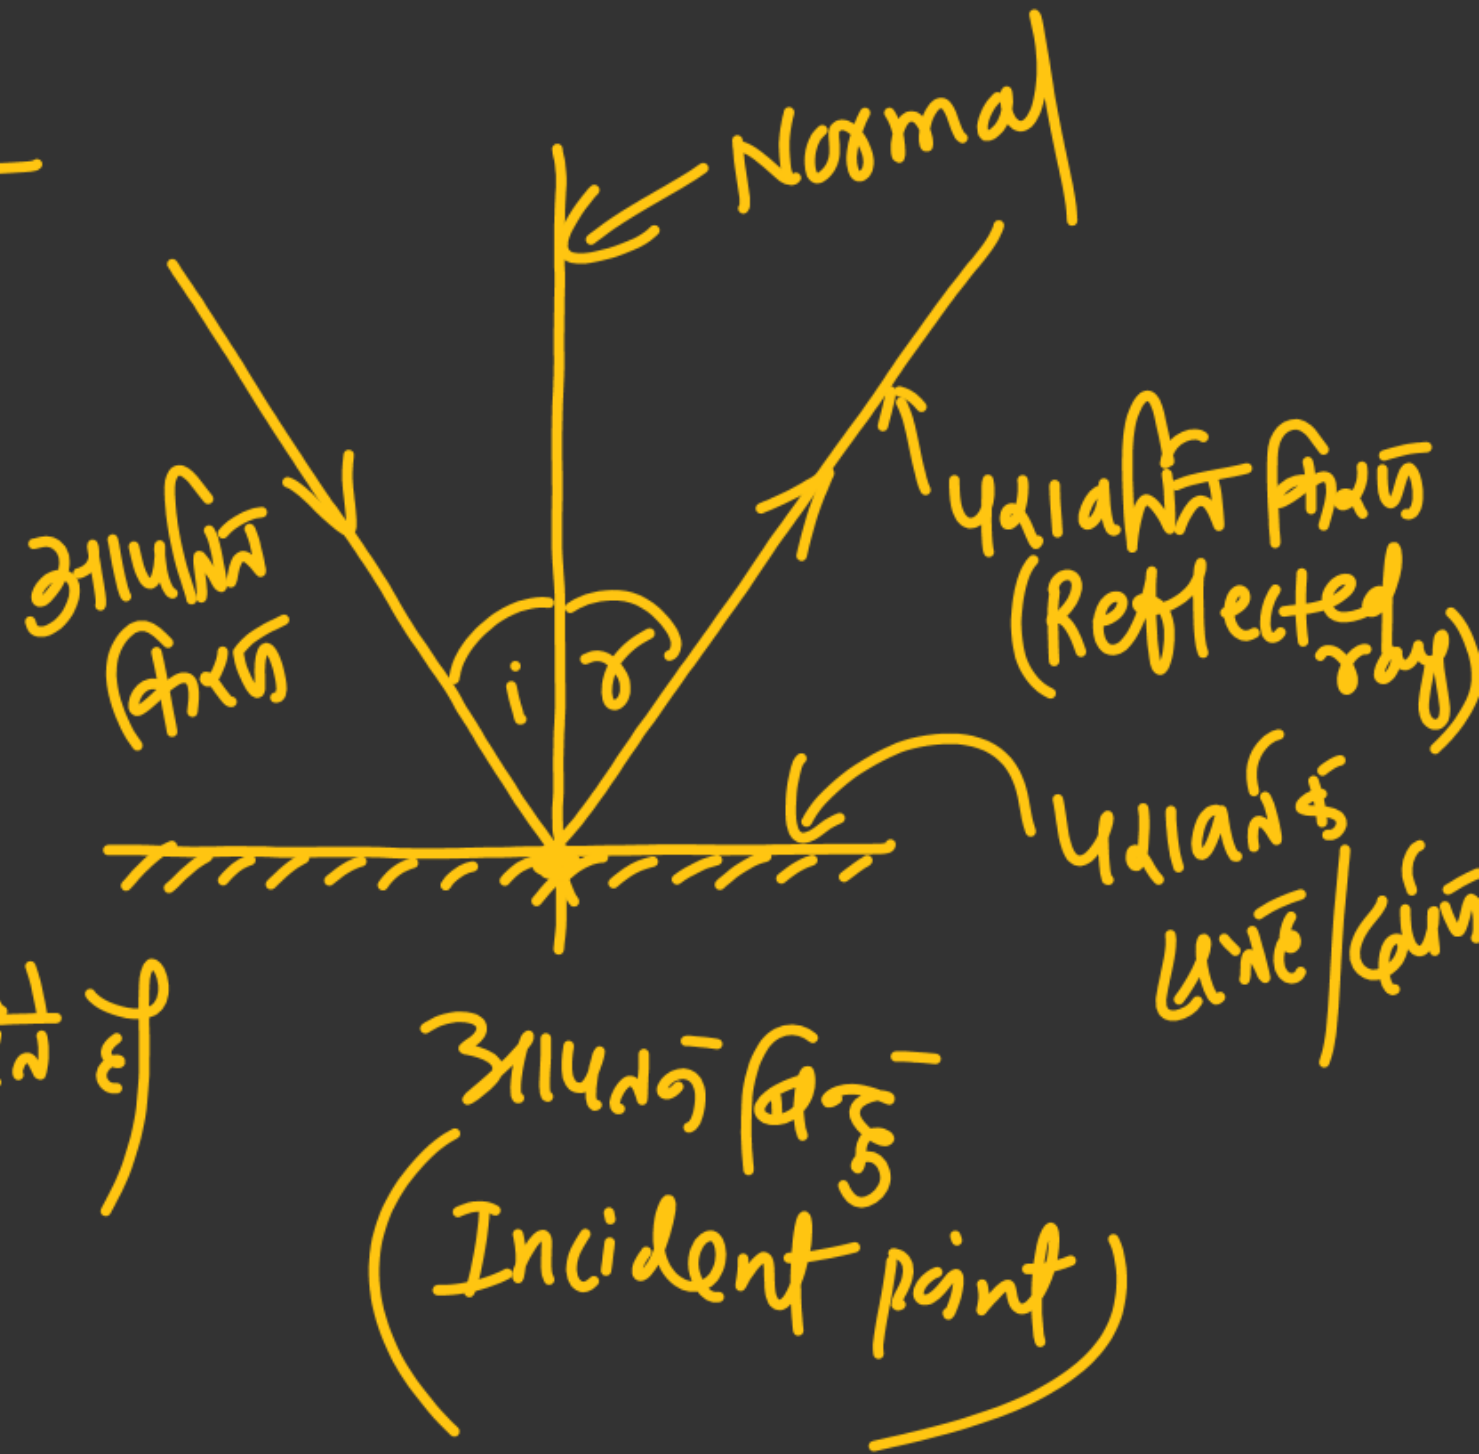 Normal
आपतित
किरण
i
r
परावर्तित किरण
(Reflected
ray)
परावर्तक
सतह/दर्पण
है
आपतन बिन्दु
(Incident point)